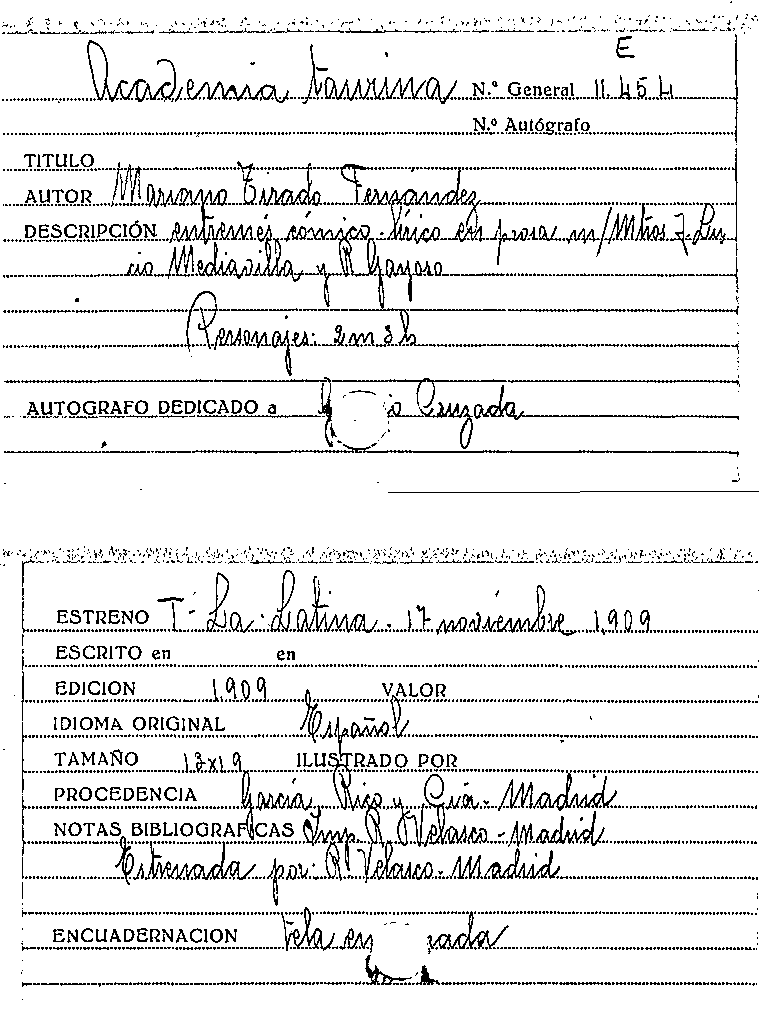 E
Academia taurina N.º General 11.454
N.º Autógrafo
TITULO
AUTOR Mariano Tirado Fernández
DESCRIPCIÓN entremés cómico-lírico en prosa m/Mtros J. Lu
cio Mediavilla y R Gayoso
Personajes: 2 m 3 h
AUTOGRAFO DEDICADO a Cruzada
ESTRENO T- La-Latina. 17 noviembre 1.909
ESCRITO en en
EDICION 1.909 VALOR
IDIOMA ORIGINAL Español
TAMAÑO 13x19 ILUSTRADO POR
PROCEDENCIA García Rico y Cía.- Madrid
NOTAS BIBLIOGRAFICAS Imp. R Velasco - Madrid
Estrenada por: R Velasco. Madrid
ENCUADERNACION Tela en